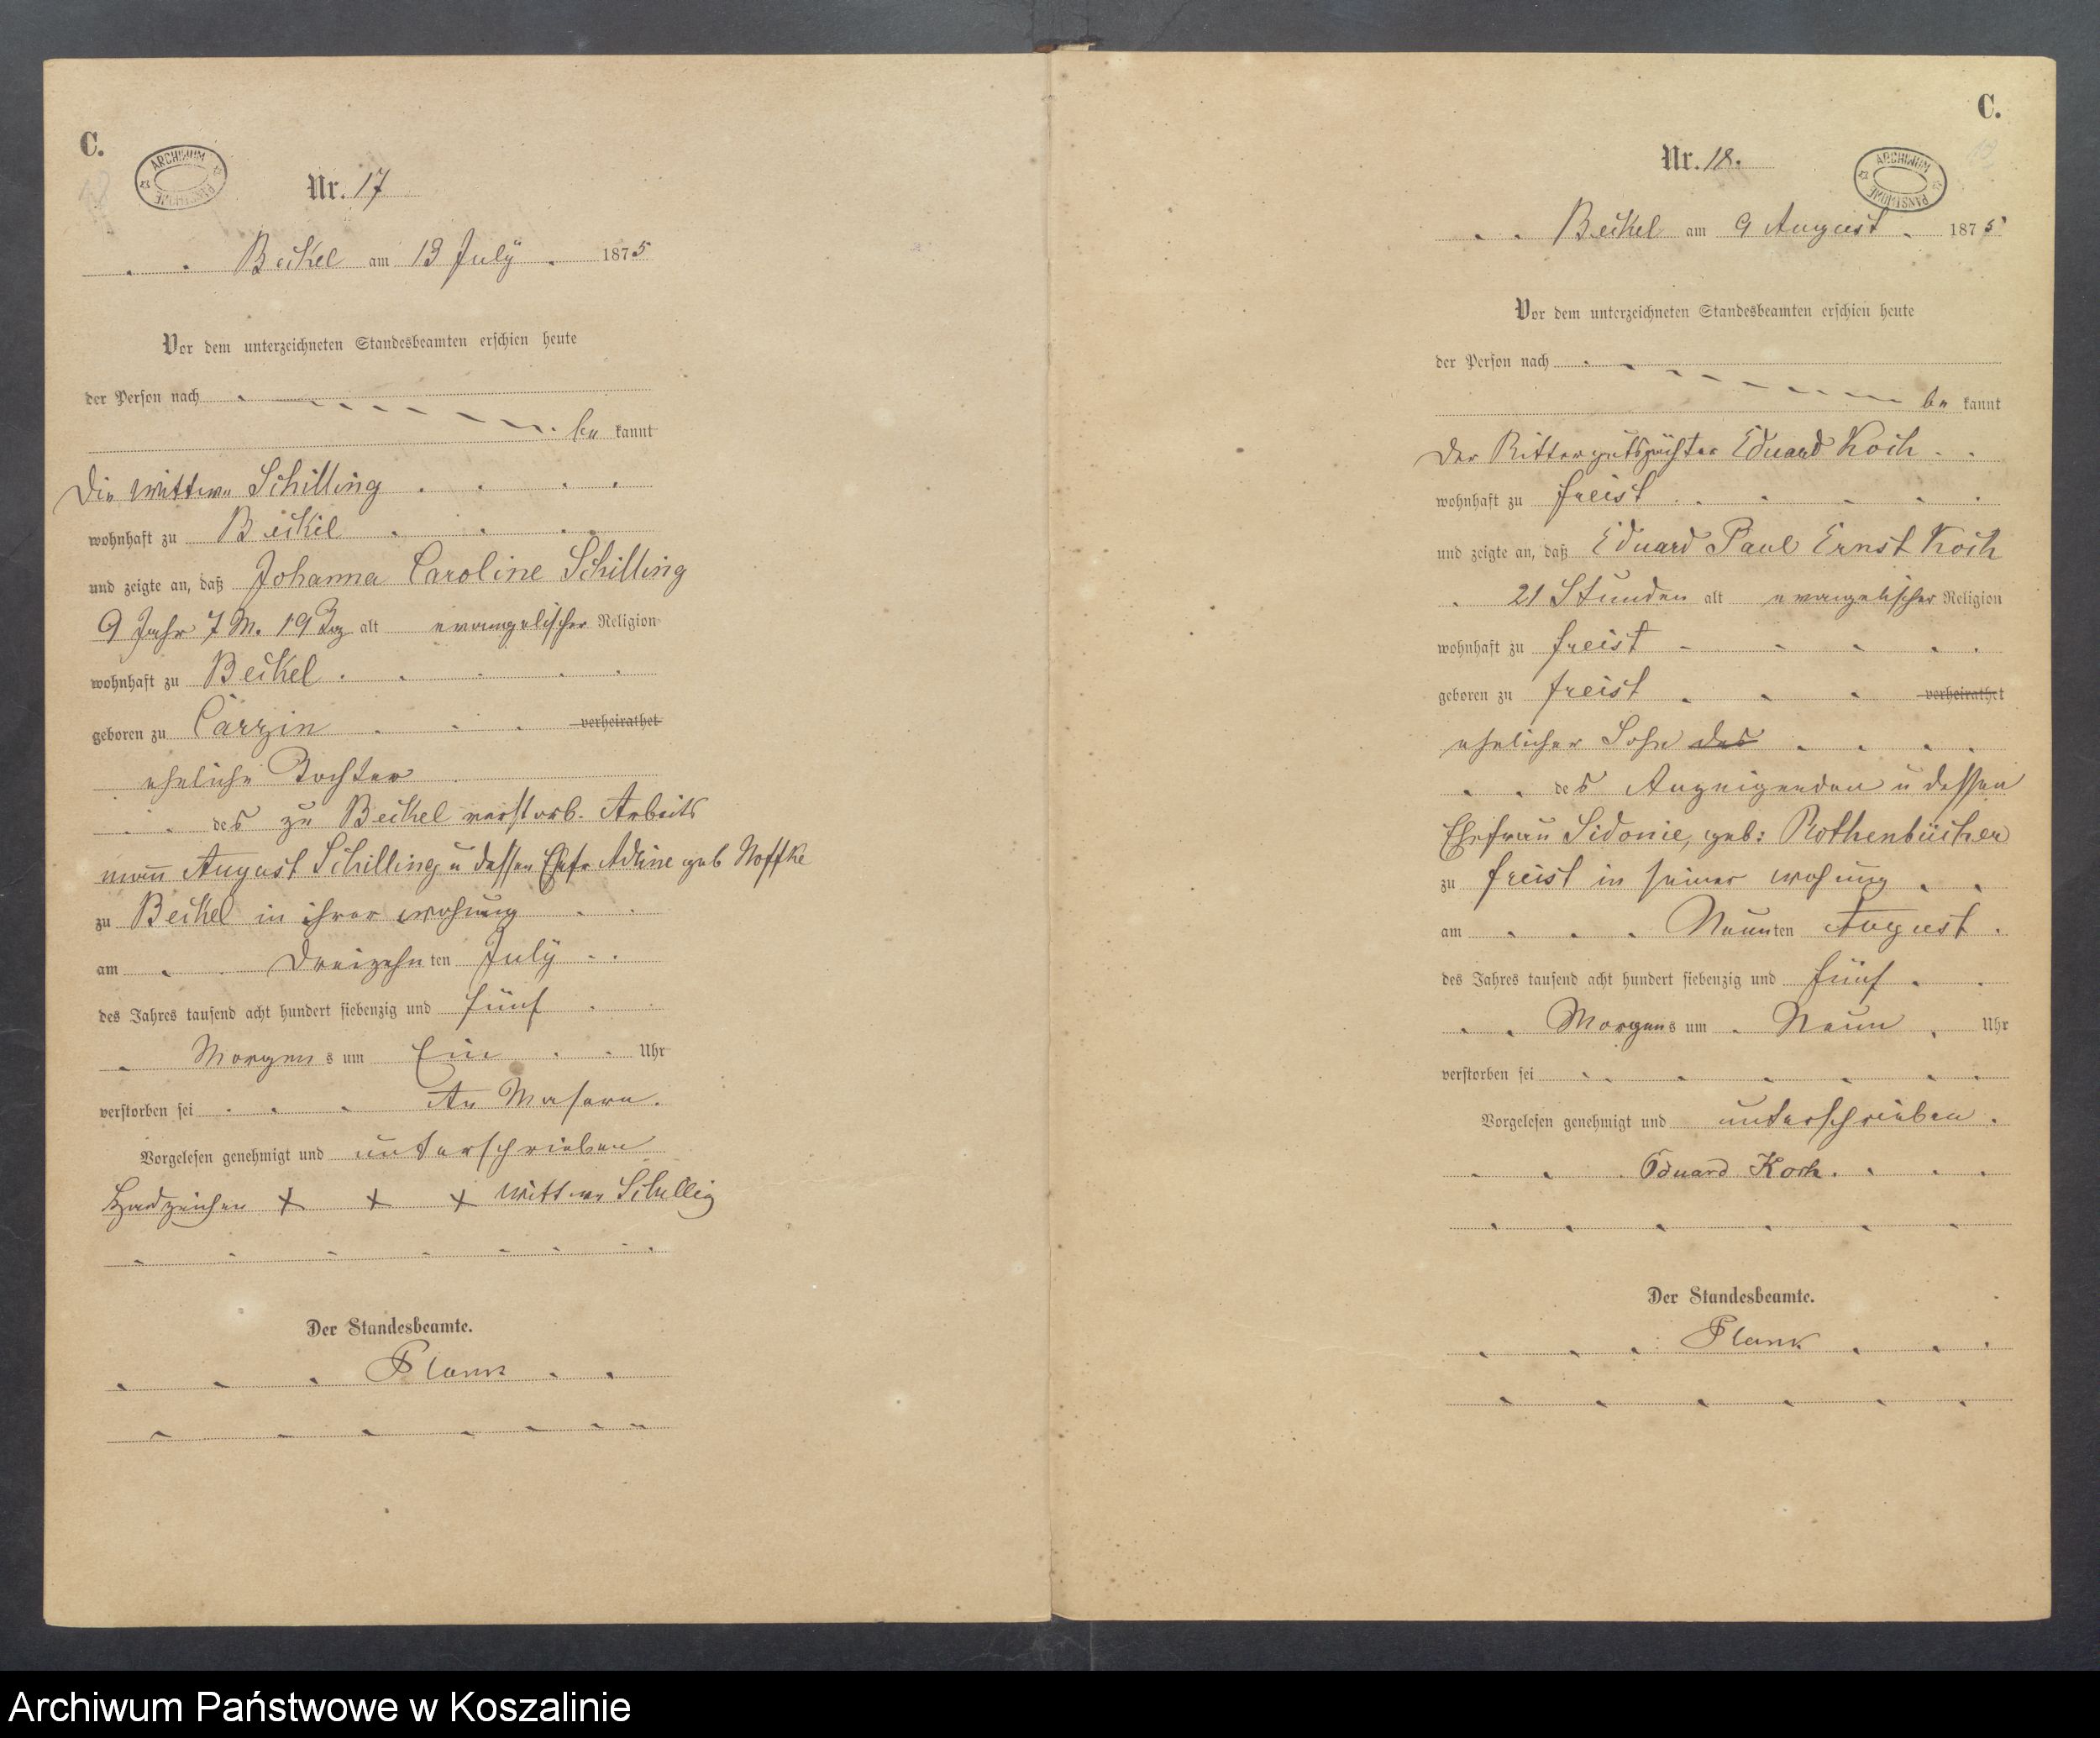 C.
ARCHIWUM PAŃSTWOWE
Nr. 17
Beckel am 13 July 1875
Vor dem unterzeichneten Standesbeamten erschien heute
der Person nach
be kannt
Die Wittwe Schilling
wohnhaft zu Beckel
und zeigte an, daß Johanna Caroline Schilling
9 Jahr 7 M. 19 Tag alt evangelischer Religion
wohnhaft zu Beckel
geboren zu Carzin verheirathet
eheliche Tochter
des zu Beckel verstorb. Arbeits
mann August Schilling u dessen Ehefr Adline geb Noffke
zu Beckel in ihrer Wohnung
am Dreizehn ten July
des Jahres tausend acht hundert siebenzig und fünf
Morgen s um Ein Uhr
verstorben sei An Masern.
Vorgelesen genehmigt und unterschrieben
Handzeichen + + + Wittwe Schillig
Der Standesbeamte.
Plank
C.
ARCHIWUM PAŃSTWOWE
Nr. 18.
Beckel am 9 August 1875
Vor dem unterzeichneten Standesbeamten erschien heute
der Person nach
be kannt
Der Rittergutspächter Eduard Koch
wohnhaft zu Freist
und zeigte an, daß Eduard Paul Ernst Koch
21 Stunden alt evangelischer Religion
wohnhaft zu Freist
geboren zu Freist verheirathet
ehelicher Sohn des
des Anzeigenden u dessen
Ehefrau Sidonie, geb: Rothenbücher
zu Freist in seiner Wohnung
am Neunten August
des Jahres tausend acht hundert siebenzig und fünf
Morgens um Neun Uhr
verstorben sei
Vorgelesen genehmigt und unterschrieben.
Eduard Koch.
Der Standesbeamte.
Plank
Archiwum Państwowe w Koszalinie